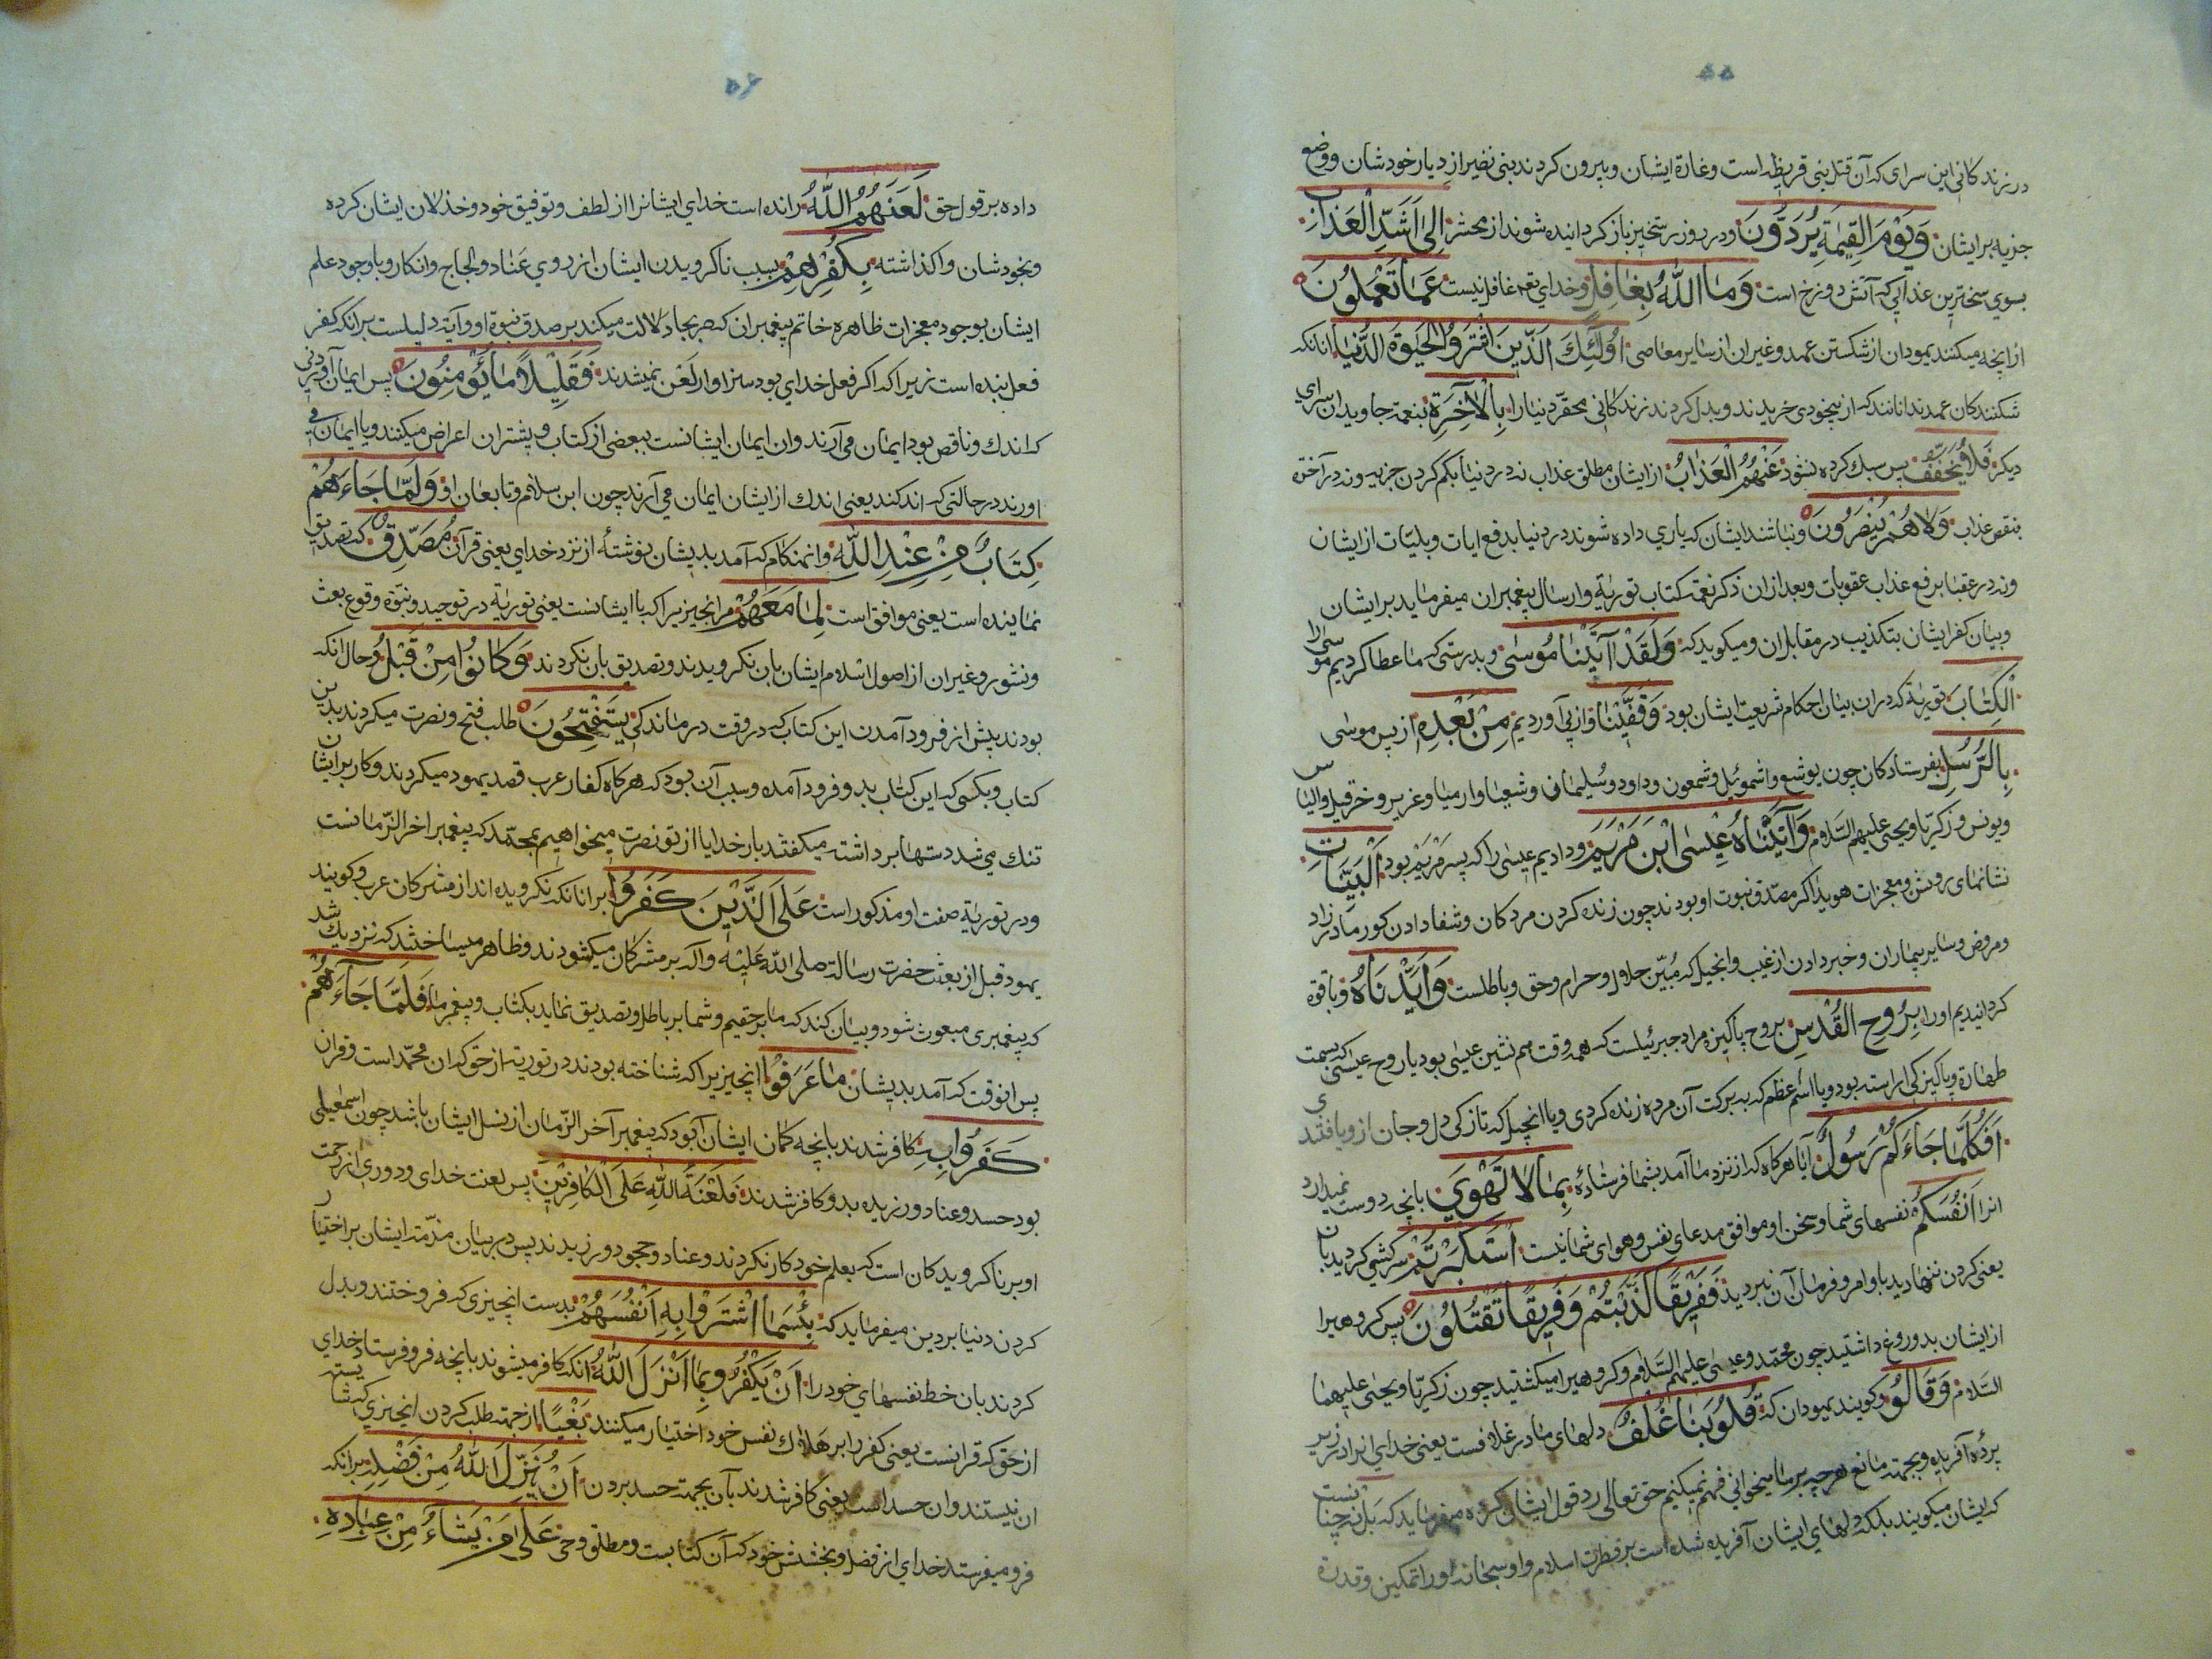 ۵۵
در زندکانی این سرای که آن قتل بنی قریظه است وغارة ایشان وبیرون کردند بنی نضیر از دیار خودشان ووضع
جزیه بر ایشان وَیَوْمَ الْقِیٰمَةِ یُرَدُّونَ ودر روز رستخیز باز کردانیده شوند از محشر اِلیٰ اَشَدِّ الْعَذَابِ
بسوی سخترین عذابی که آتش دوزخ است وَمَا اللّٰهُ بِغَافِلٍ وخدای تعم غافل نیست عَمَّا تَعْمَلُونَ
از انچه میکنند یهودان از شکستن عهد وغیر ان از سایر معاصی اُولٰئِكَ الَّذِینَ اشْتَرَوُا الْحَیٰوةَ الدُّنْیَا انانکه
شکنندکان عهدند انانند که از بیخودی خریدند وبدل کردند زندکانی محقر دنیارا بِالْاٰخِرَةِ بنعمة جاویدان سرای
دیکر فَلَا یُخَفَّفُ پس سبك کرده نشود عَنْهُمُ الْعَذَابُ از ایشان مطلق عذاب نه در دنیا بکم کردن جزیه ونه در آخرة
بنقص عذاب وَلَا هُمْ یُنْصَرُونَ ونباشند ایشان که یاری داده شوند در دنیا بدفع ایات وبلیّات از ایشان
ونه در عقبا برفع عذاب عقوبات وبعد از ان ذکر نعمة کتاب توریٰة وارسال پیغمبران میفرماید بر ایشان
وبیان کفر ایشان بتکذیب در مقابل ان ومیکوید که وَلَقَدْ اٰتَیْنَا مُوسٰی وبدرستی که ما عطا کردیم موسی را
الْکِتَابَ توریة که در ان بیان احکام شریعة ایشان بود وَقَفَّیْنَا واز پی آوردیم مِنْ بَعْدِهِ از پس موسی
بِالرُّسُلِ بفرستادکان چون یوشع واشموئیل وشمعون وداود وسُلیمان وشعیا وارمیا وعزیر وحزقیل والیاس
ویونس وزکریّا ویحیی علیهم السّلام وَاٰتَیْنَا عِیْسَی ابْنَ مَرْیَمَ ودادیم عیسی را که پسر مَرْیَمْ بود الْبَیِّنَاتِ
نشانهای روشن ومعجزات هویدا که مصدّق نبوت او بودند چون زنده کردن مردکان وشفا دادن کور مادرزاد
ومروض وسایر بیماران وخبر دادن از غیب وانجیل که مُبیّن حلال وحرام وحق وباطلست وَاَیَّدْنَاهُ وباقوة
کردانیدیم اورا بِرُوحِ الْقُدُسِ بروح پاکیزه مراد جبرئیلست که همه وقت هم نشین عیسی بود یا روح عیسی که بسمت
طهارة وپاکیزکی اراسته بود ویا اسم اعظم که به برکت آن مرده زنده کردی ویا انجیل که تازکی دل وجان از ویافتندی
اَفَکُلَّمَا جَاءَکُمْ رَسُولٌ آیا هرکاه که از نزد ما آمد بشما فرستادهٔ بِمَا لَا تَهْوٰی بانچه دوست نمیدارد
انرا اَنْفُسُکُمُ نفسهای شما وسخن او موافق مدعای نفس وهوای شما نیست اسْتَکْبَرْتُمْ سرکشی کردید بان
یعنی کردن ننهادید باوامر وفرمان آن نبردید فَفَرِیقًا کَذَّبْتُمْ وَفَرِیقًا تَقْتُلُونَ پس کروهیرا
از ایشان بدروغ داشتید چون محمّد وعیسی علیهم السّلام وکروهیرا میکشتید چون زکریّا ویحیی علیهما
السّلام وَقَالُوا وکویند یهودان که قُلُوبُنَا غُلْفٌ دلهای ما در غلافست یعنی خدای انرا در زیر
پردهٔ آفریده وبجهت مانع هرچه بر ما میخوانی فهم نمیکنیم حق تعالی رد قول ایشان کرده میفرماید که بَلْ نه چنانست
که ایشان میکویند بلکه دلهای ایشان آفریده شده است بر فطرت اسلام واو سبحانه اورا تمکین وقدرة
۵۶
داده بر قول حق لَعَنَهُمُ اللّٰهُ رانده است خدای ایشانرا از لطف وتوفیق خود وخذلان ایشان کرده
وبخودشان واکذاشته بِکُفْرِهِمْ بسبب ناکرویدن ایشان از روی عناد ولجاج وانکار وباوجود علم
ایشان بوجود معجزات ظاهره خاتم پیغمبران که صریحا دلالت میکند بر صدق نبوة او وآیة دلیلست بر انکه کفر
فعل بنده است زیرا که اکر فعل خدای بود سزاوار لَعْن نمیشدند فَقَلِیْلًا مَا یُؤْمِنُونَ پس ایمان آوردنی
که اندك وناقص بود ایمان می آرند وان ایمان ایشانست ببعضی از کتاب وپیشتر ان اعراض میکنند ویا ایمان می
اورند در حالتی که اندکند یعنی اندك از ایشان ایمان می آرند چون ابن سلام وتابعان او وَلَمَّا جَاءَهُمْ
کِتَابٌ مِنْ عِنْدِ اللّٰهِ وانهنکام که آمد بدیشان نوشتهٔ از نزد خدای یعنی قرآن مُصَدِّقٌ که تصدیق
نماینده است یعنی موافق است لِمَا مَعَهُمْ مر انچیزیرا که با ایشانست یعنی توریٰة در توحید ونبوّة وقوع بعث
ونشور وغیر ان از اصول اسلام ایشان بان نکرویدند وتصدیق بان نکردند وَکَانُوا مِنْ قَبْلُ وحال انکه
بودند پیش از فرود آمدن این کتاب که در وقت درماندکی یَسْتَفْتِحُونَ طلب فتح ونصرت میکردند بدین
کتاب وبکسی که این کتاب بدو فرود آمده وسبب آن بود که هرکاه کفار عرب قصد یهود میکردند وکار بر ایشان
تنك می شد دستها برداشته میکفتند بار خدایا از تو نصرت میخواهیم بمحمّد که پیغمبر اخر الزّمانست
ودر توریٰة صفت او مذکور است عَلَی الَّذِیْنَ کَفَرُوا بر انانکه نکرویده اند از مشرکان عرب وکویند
یهود قبل از بعثت حضرت رسالة صلی اللّٰه عَلَیْهِ وآله بر مشرکان میکشودند وظاهر میساختند که نزدیك شد
که پیغمبری مبعوث شود وبیان کند که ما بر حقیم وشما بر باطل وتصدیق نماید بکتاب وپیغمبر ما فَلَمَّا جَاءَهُمْ
پس انوقت که آمد بدیشان مَا عَرَفُوا انچیزیرا که شناخته بودند در توریة از حق که ان محمّد است وقران
کَفَرُوا بِهِ کافر شدند بانچه کمان ایشان آن بود که پیغمبر آخر الزّمان از نسل ایشان باشد چون اسمعیلی
بود حسد وعناد ورزیده بدو کافر شدند فَلَعْنَةُ اللّٰهِ عَلَی الْکَافِرِیْنَ پس لعنت خدای ودوری از رحمت
او بر ناکرویدکان است که بعلم خود کار نکردند وعناد وجحود ورزیدند پس در بیان مذمّت ایشان بر اختیار
کردن دنیا بر دین میفرماید که بِئْسَمَا اشْتَرَوْا بِهِ اَنْفُسَهُمْ بد ست انچیزی که فروختند وبدل
کردند بان خط نفسهای خود را اَنْ یَکْفُرُوا بِمَا اَنْزَلَ اللّٰهُ انکه کافر میشوند بانچه فرو فرستاد خدای
از حق که قرانست یعنی کفر را بر هلاك نفس خود اختیار میکنند بَغْیًا از جهة طلب کردن انچیزی که شایسته
ان نیستند وان حسد است یعنی کافر شدند بآن بجهت حسد بردن اَنْ یُنَزِّلَ اللّٰهُ مِنْ فَضْلِهِ بر انکه
فرو میفرستد خدای از فضل وبخشش خود که آن کتابست ومطلق وحی عَلٰی مَنْ یَشَاءُ مِنْ عِبَادِهِ